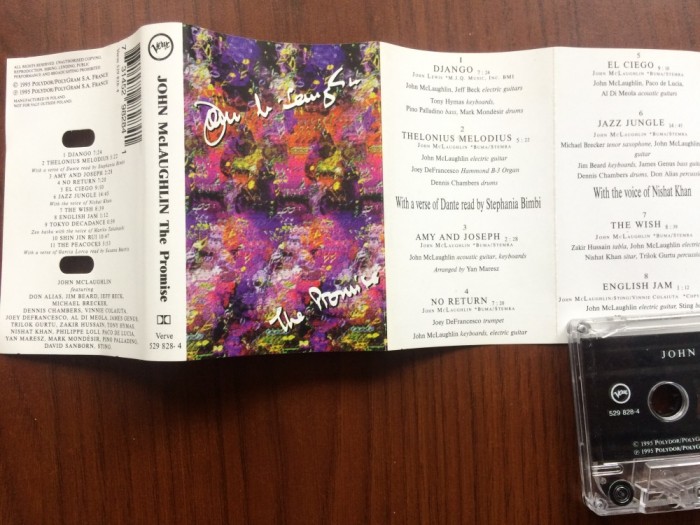 Verve
ALL RIGHTS RESERVED. UNAUTHORISED COPYING,
REPRODUCTION, HIRING, LENDING, PUBLIC
PERFORMANCE AND BROADCASTING PROHIBITED
℗ 1995 POLYDOR/POLYGRAM S.A. FRANCE
© 1995 POLYDOR/POLYGRAM S.A. FRANCE
MANUFACTURED IN POLAND
NOT FOR SALE OUTSIDE POLAND
7 31452 98284 7
1 DJANGO 7:24
2 THELONIUS MELODIUS 5:22
With a verse of Dante read by Stephania Bimbi
3 AMY AND JOSEPH 2:28
4 NO RETURN 7:20
5 EL CIEGO 9:10
6 JAZZ JUNGLE 14:45
With the voice of Nishat Khan
7 THE WISH 8:39
8 ENGLISH JAM 1:12
9 TOKYO DECADANCE
10 SHIN JIN RUI 10:47
11 THE PEACOCKS
JOHN MCLAUGHLIN
featuring
DON ALIAS, JIM BEARD, JEFF BECK,
MICHAEL BRECKER,
DENNIS CHAMBERS, VINNIE COLAIUTA,
JOEY DEFRANCESCO, AL DI MEOLA, JAMES GENUS,
TRILOK GURTU, ZAKIR HUSSAIN, TONY HYMAS,
NISHAT KHAN, PHILIPPE LOLI, PACO DE LUCIA,
YAN MARESZ, MARK MONDESIR, PINO PALLADINO,
DAVID SANBORN, STING
Verve
JOHN McLAUGHLIN The Promise
Verve
529 828-4
John McLaughlin
The Promise
1
DJANGO 7:24
JOHN LEWIS *M.J.Q. MUSIC, INC. BMI
John McLaughlin, Jeff Beck electric guitars
Tony Hyman keyboards,
Pino Palladino bass, Mark Mondesir drums
2
THELONIUS MELODIUS 5:22
JOHN MCLAUGHLIN *BUMA/STEMRA
John McLaughlin electric guitar
Joey DeFrancesco Hammond B-3 Organ
Dennis Chambers drums
With a verse of Dante read by Stephania Bimbi
3
AMY AND JOSEPH 2:28
JOHN MCLAUGHLIN *BUMA/STEMRA
John McLaughlin acoustic guitar, keyboards
Arranged by Yan Maresz
4
NO RETURN 7:20
JOHN MCLAUGHLIN *BUMA/STEMRA
Joey DeFrancesco trumpet
John McLaughlin keyboards, electric guitar
5
EL CIEGO 9:10
JOHN MCLAUGHLIN *BUMA/STEMRA
John McLaughlin, Paco de Lucia,
Al Di Meola acoustic guitars
6
JAZZ JUNGLE 14:45
JOHN MCLAUGHLIN *BUMA/STEMRA
Michael Brecker tenor saxophone, John McLaughlin
electric guitar
Jim Beard keyboards, James Genus bass guitar
Dennis Chambers drums, Don Alias percussion
With the voice of Nishat Khan
7
THE WISH 8:39
JOHN MCLAUGHLIN *BUMA/STEMRA
Zakir Hussain tabla, John McLaughlin electric
Nishat Khan sitar, Trilok Gurtu percussion
8
ENGLISH JAM 1:12
JOHN MCLAUGHLIN/STING/VINNIE COLAIUTA
John McLaughlin electric guitar, Sting
JOHN
Verve
529 828-4
© 1995 POLYDOR/POLYGRAM
℗ 1995 POLYDOR/POLYGRAM